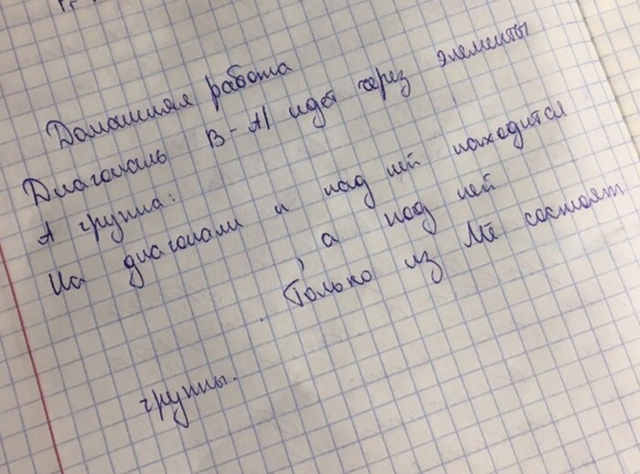 Домашняя работа
Диагональ B-Al идет через элементы
А группа:
На диагонали и над ней находится
, а под ней
. Только из Ме состоят
группы.